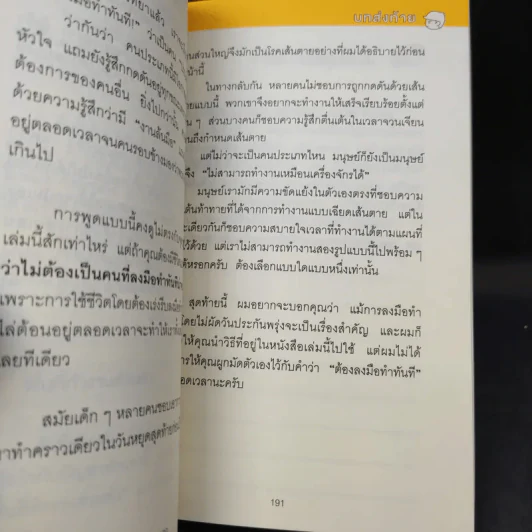 ทำทันที!" ว่าเป็นคน
ว่ากันว่า คนประเภทนี้
หัวใจ แถมยังรู้สึกกดดันอยู่
ต้องการของคนอื่น ยิ่งไปกว่า
ด้วยความรู้สึกว่ามี "งานล้นมือ"
อยู่ตลอดเวลาจนคนรอบข้างมอง
เกินไป
การพูดแบบนี้คงดูไม่ตรง
เล่มนี้สักเท่าไหร่ แต่ถ้าคุณ
ว่าไม่ต้องเป็นคนที่ลงมือทำทัน
เพราะการใช้ชีวิตโดยต้องเร่งรีบ
ไล่ต้อนอยู่ตลอดเวลาจะทำให้
เลยทีเดียว
สมัยเด็ก ๆ หลายคนชอบ
มาทำคราวเดียวในวันหยุดสุดท้าย
บทส่งท้าย
านส่วนใหญ่จึงมักเป็นโรคเส้นตายอย่างที่ผมได้อธิบายไว้ก่อน
น้านี้
ในทางกลับกัน หลายคนไม่ชอบการถูกกดดันด้วยเส้น
ายแบบนี้ พวกเขาจึงอยากจะทำงานให้เสร็จเรียบร้อยตั้งแต่
ๆ ส่วนบางคนก็ชอบความรู้สึกตื่นเต้นในเวลาจวนเจียน
นถึงกำหนดเส้นตาย
แต่ไม่ว่าจะเป็นคนประเภทไหน มนุษย์ก็ยังเป็นมนุษย์
จึง "ไม่สามารถทำงานเหมือนเครื่องจักรได้"
มนุษย์เรามักมีความขัดแย้งในตัวเองตรงที่ชอบความ
ต้นท้าทายที่ได้จากการทำงานแบบเฉียดเส้นตาย แต่ใน
ะเดียวกันก็ชอบความสบายใจเวลาที่ทำงานได้ตามแผนที่
ไว้ด้วย แต่เราไม่สามารถทำงานสองรูปแบบนี้ไปพร้อม ๆ
ได้หรอกครับ ต้องเลือกแบบใดแบบหนึ่งเท่านั้น
สุดท้ายนี้ ผมอยากจะบอกคุณว่า แม้การลงมือทำ
โดยไม่ผัดวันประกันพรุ่งจะเป็นเรื่องสำคัญ และผมก็
ให้คุณนำวิธีที่อยู่ในหนังสือเล่มนี้ไปใช้ แต่ผมไม่ได้
การให้คุณผูกมัดตัวเองไว้กับคำว่า "ต้องลงมือทำทันที"
ลอดเวลานะครับ
191